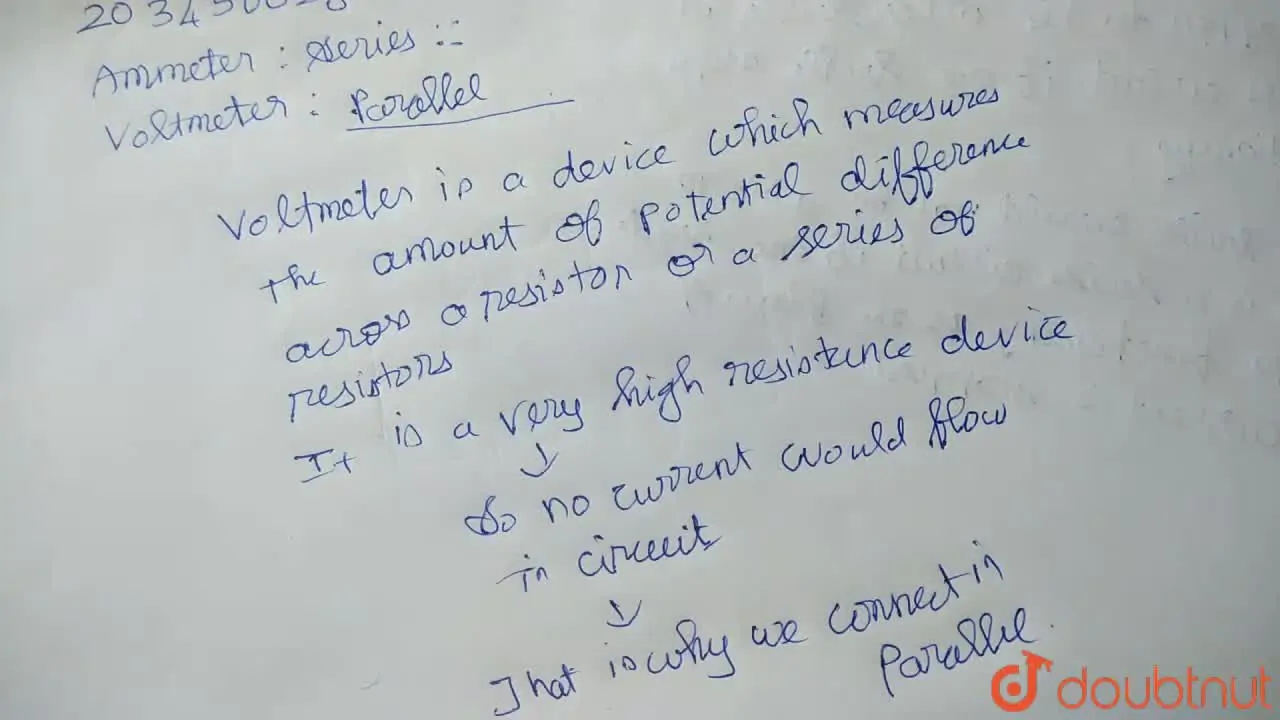 Ammeter : series :-
Voltmeter : Parallel
Voltmeter is a device which measures
the amount of potential difference
across a resistor or a series of
resistors
It is a very high resistance device
So no current would flow
in circuit
That is why we connect in
Parallel.
doubtnut